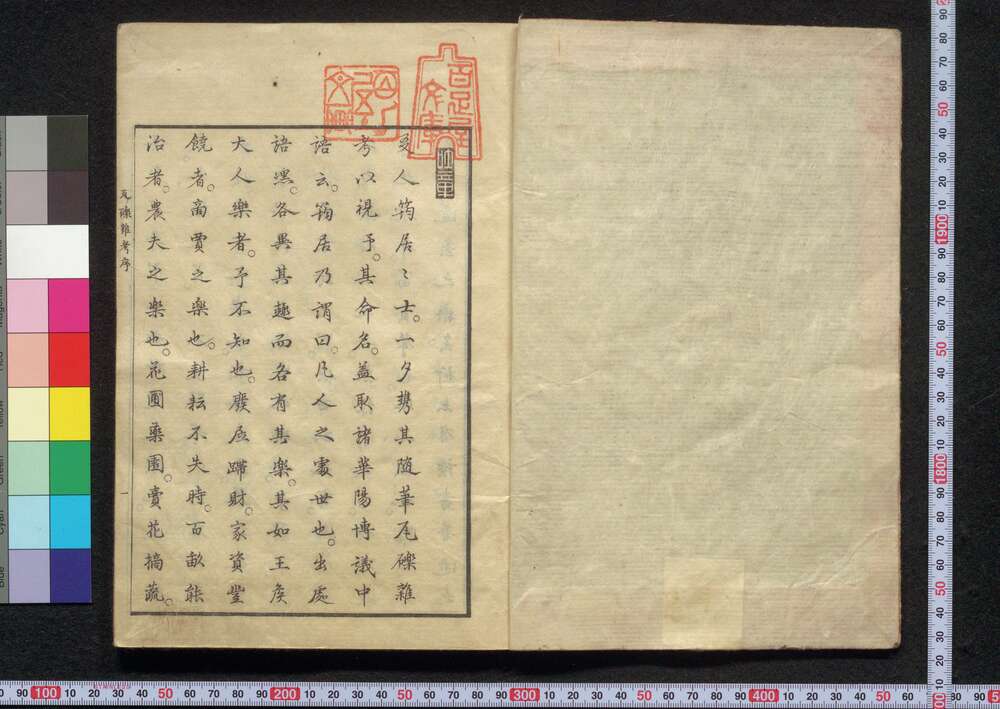 友人筠居〻士。一夕携其随筆瓦礫雜
考以視予。其命名。蓋取諸華陽博議中
語云。筠居乃謂曰。凡人之處世也。出處
語黙。各異其趣而各有其樂。其如王侯
大人樂者。予不知也。廢居蹛財。家資豐
饒者。商賈之樂也。耕耘不失時。百畝能
治者。農夫之樂也。花圃藥園。賣花摘蔬。
瓦礫雜考序
一